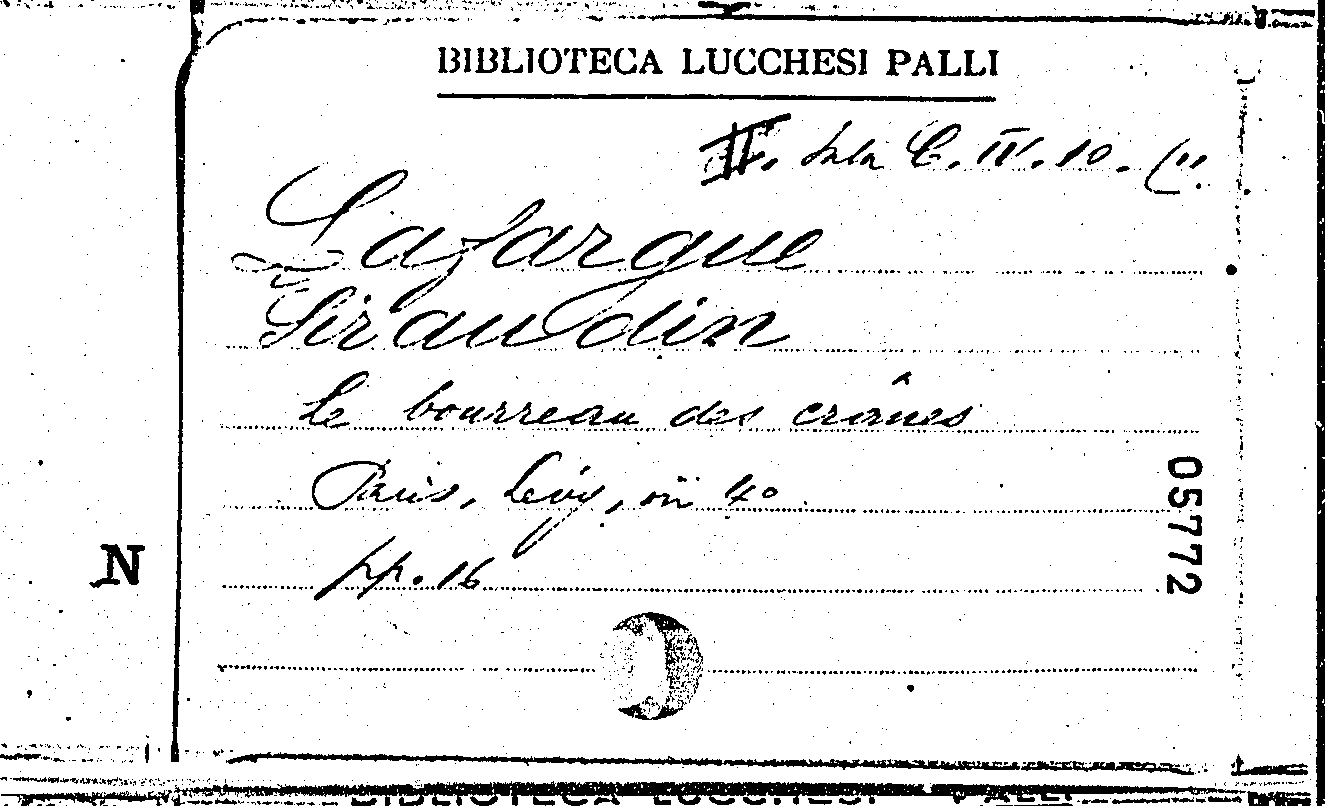 BIBLIOTECA LUCCHESI PALLI
II. Sala C. IV. 10. (11.
Lafargue
Siraudin
Le bourreau des crânes
Paris, Lévy, in 4º
pp. 16
05772
N
BIBLIOTECA LUCCHESI PALLI